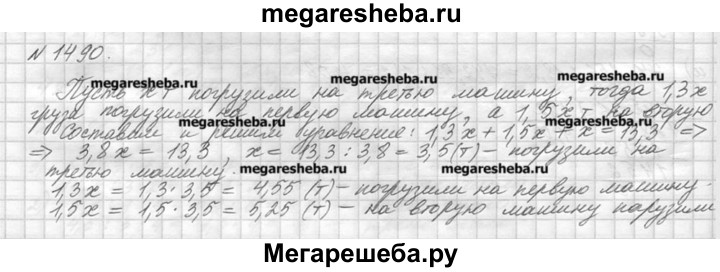 megaresheba.ru
№ 1490.
megaresheba.ru megaresheba.ru
Пусть x т погрузили на третью машину, тогда 1,3x
груза погрузили на первую машину, а 1,5x т на вторую
megaresheba.ru megaresheba.ru
Составим и решим уравнение: 1,3x + 1,5x + x = 13,3 =>
=> 3,8x = 13,3, x = 13,3 : 3,8 = 3,5(т) – погрузили на
третью машину.
megaresheba.ru megaresheba.ru
1,3x = 1,3 · 3,5 = 4,55 (т) – погрузили на первую машину.
1,5x = 1,5 · 3,5 = 5,25 (т) – на вторую машину нарузили
Мегарешеба.ру